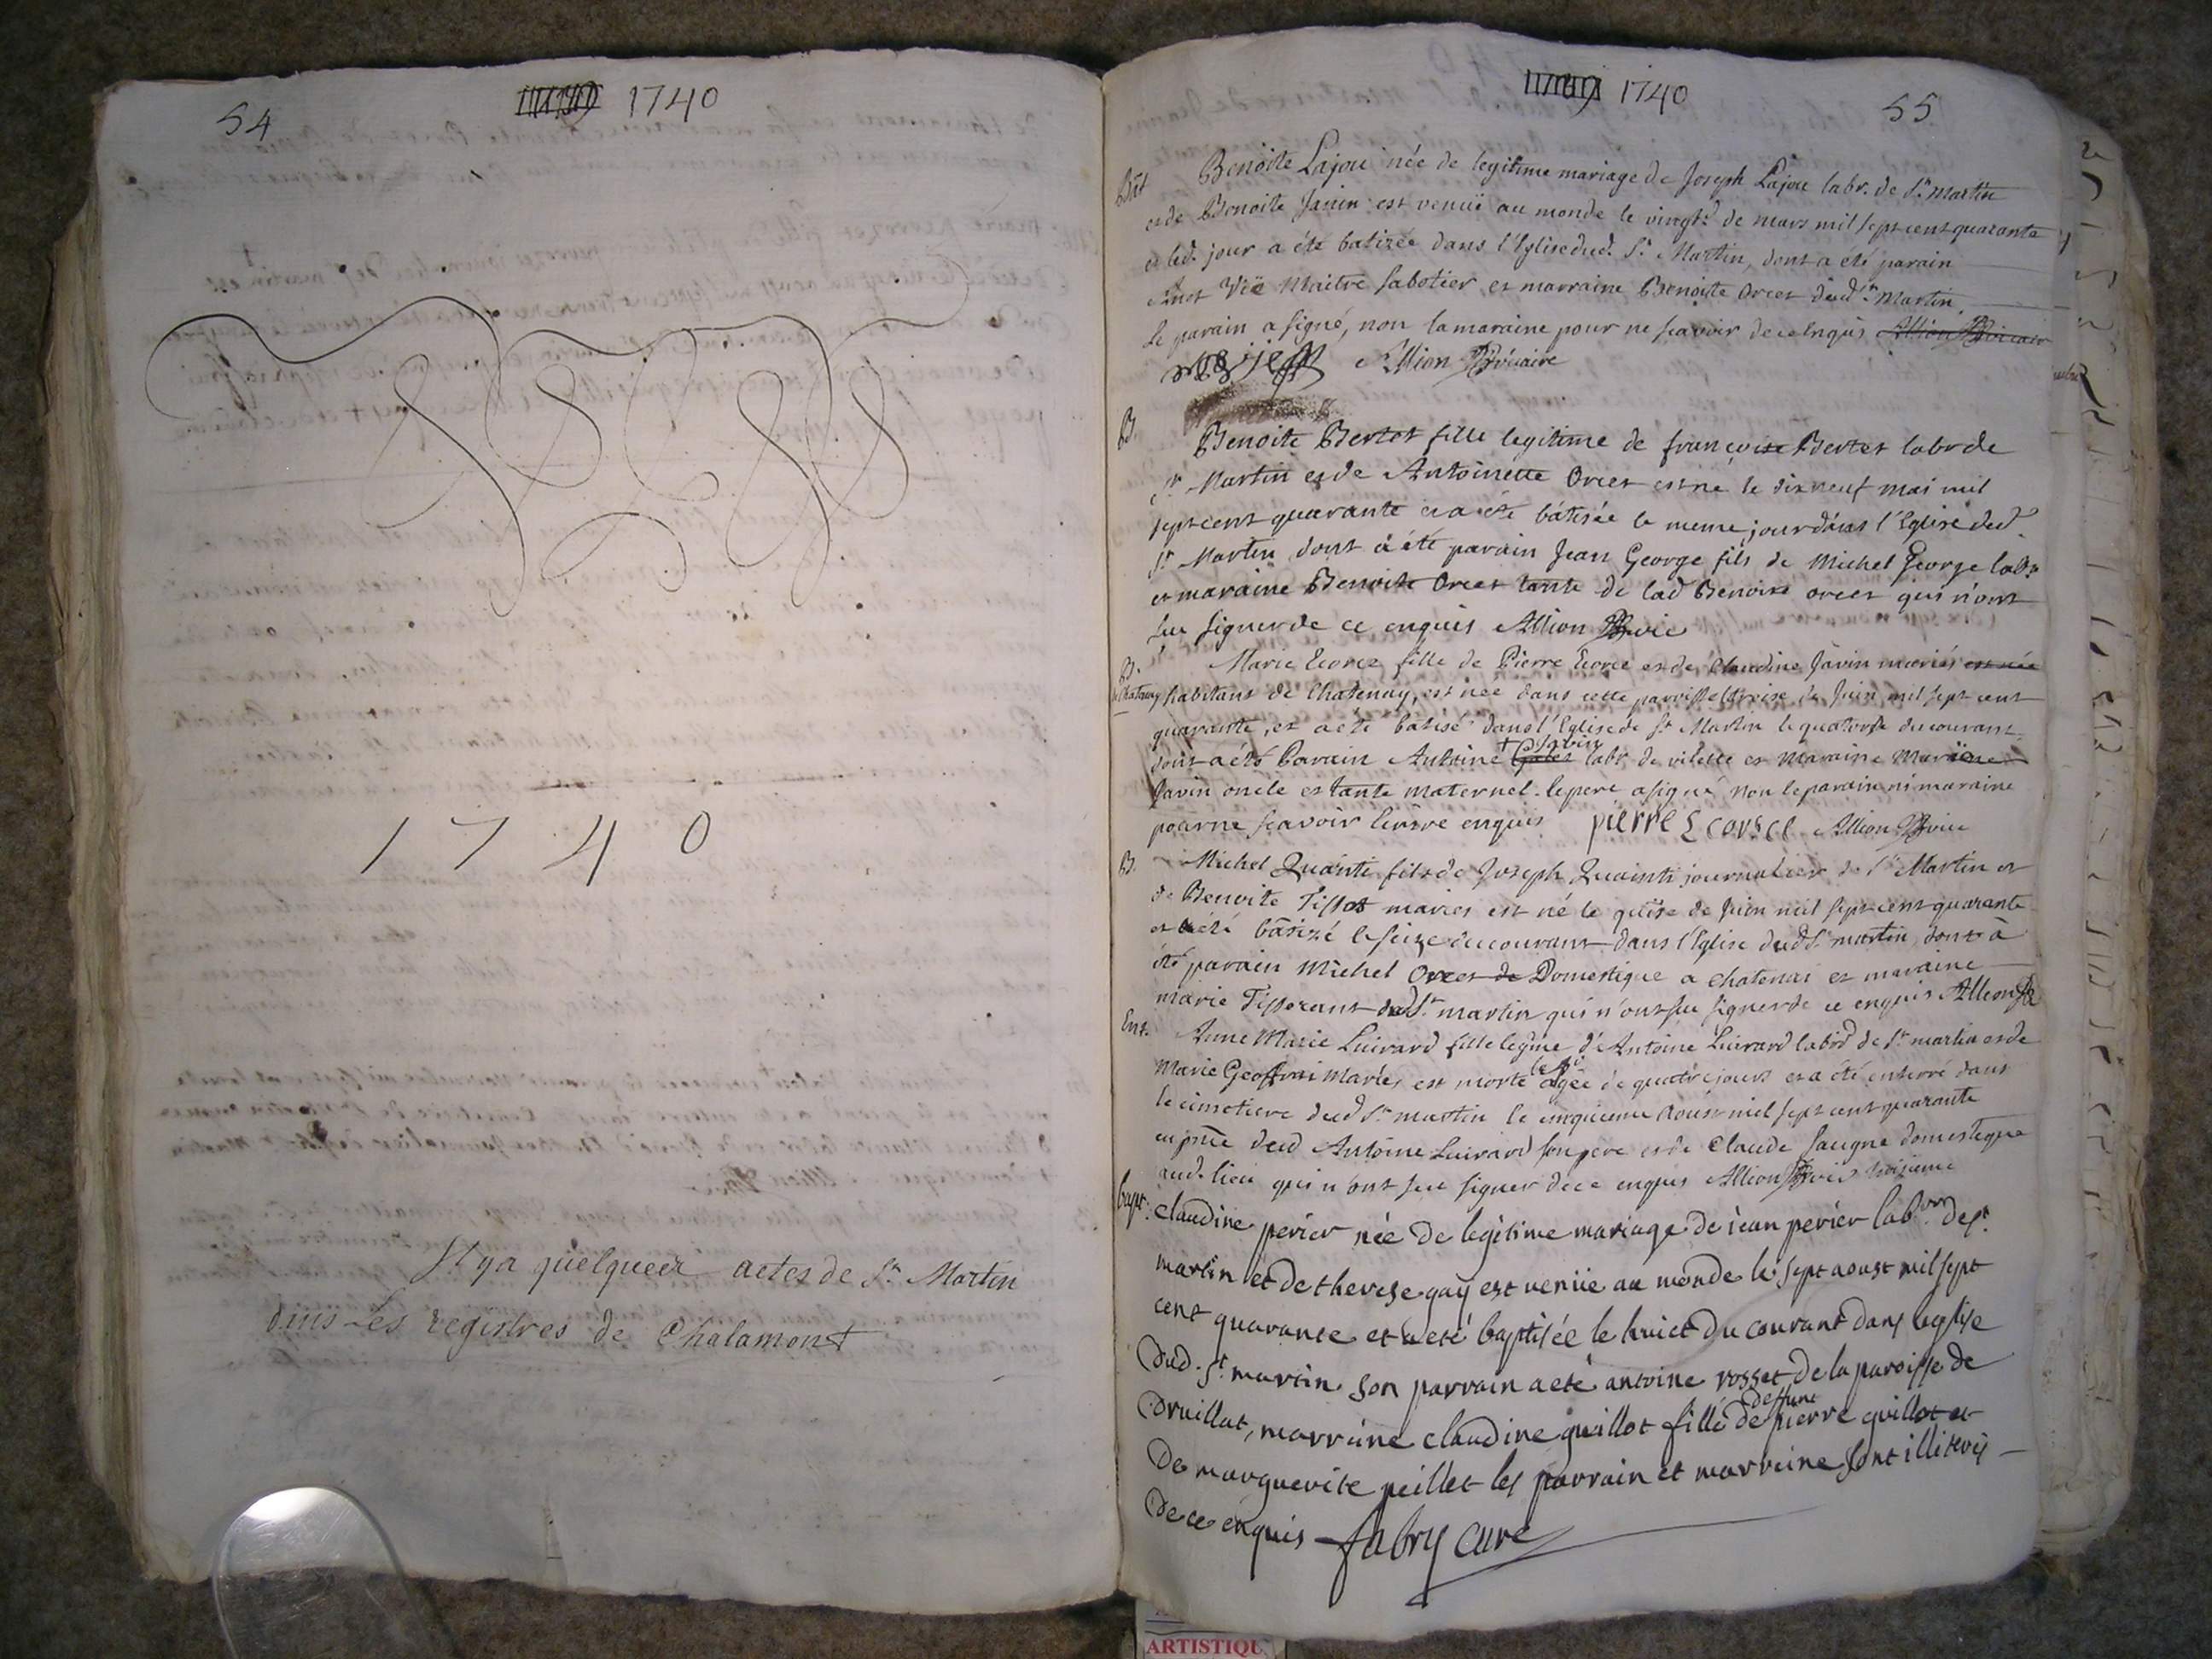 54
1740
1740
Il y a quelques actes de St. Martin
dans les registres de Chalamont
1740
55
Bat
Benoite Lajou née de legitime mariage de Joseph Lajou labr. de St. Martin
et de Benoite Janin est venüe au monde le vingt de mars mil sept cent quarante
et led. jour a été batizée dans l'Eglise dud. St. Martin, dont a été parain
Maitre sabotier et marraine Benoite Orcet dud St. Martin
Le parain a signé, non la maraine pour ne scavoir de ce enquis
Allion Vicaire
B.
Benoite Bertet fille legitime de francois Bertet labr de
St. Martin et de Antoinette Orcet est né le dix neuf mai mil
sept cent quarante et a été bâtisée le meme jour dans l'Eglise dud.
St. Martin dont à été parain Jean George fils de Michel George labr
et maraine Benoite Orcet tante de lad Benoite orcet qui n'ont
su signer de ce enquis Allion vic
B.
de Chatenay
Marie Ecorce fille de Pierre Ecorce et de Claudine Javin mariés est née
habitant de Chatenay, est née dans cette paroisse le treize de Juin mil sept cent
quarante, et a été batisé dans l'Eglise de St Martin le quatorse du courant
dont a été Parain Antoine Javin labr. de vilette et Maraine
Javin oncle et tante maternel. le pere a signé non le parain ni maraine
pour ne scavoir enquis pierre Ecorsce Allion vic
B.
Michel Quainti fils de Joseph Quainti journalier de St Martin et
de Benoite Tissot mariés est né le quise de Juin mil sept cent quarante
et a été batizé le seize du courant dans l'Eglise dud St martin, dont à
été parain Michel Orcet de Domestique a chatenai et maraine
marie Tisserant dud St. martin qui n'ont su signer de ce enquis Allion
Ent.
Anne Marie Luirard fille legme d'Antoine Luirard labr de St martin et de
Marie Geoffrai Mariés est morte agée de quatre jours et a été enterré dans
le cimetiere dud St martin le cinquieme Aoust mil sept cent quarante
en pnce dud Antoine Luirard son pere et de Claude Saugne domestique
aud. lieu qui n'ont seu signer de ce enquis Allion vic
Bapt.
claudine perier née de legitime mariage de iean perier labr. de st.
martin et de therese gay est veniie au monde le sept aoust mil sept
cent quarante et a eté baptisée le huict du courant dans leglise
dud. st. martin son parrain a eté antoine rosset de la paroisse de
Druillat, marraine claudine guillot fille de deffunt pierre guillot et
de marguerite peillet les parrain et marraine sont illiterés
de ce enquis fabry curé
ARTISTIQU